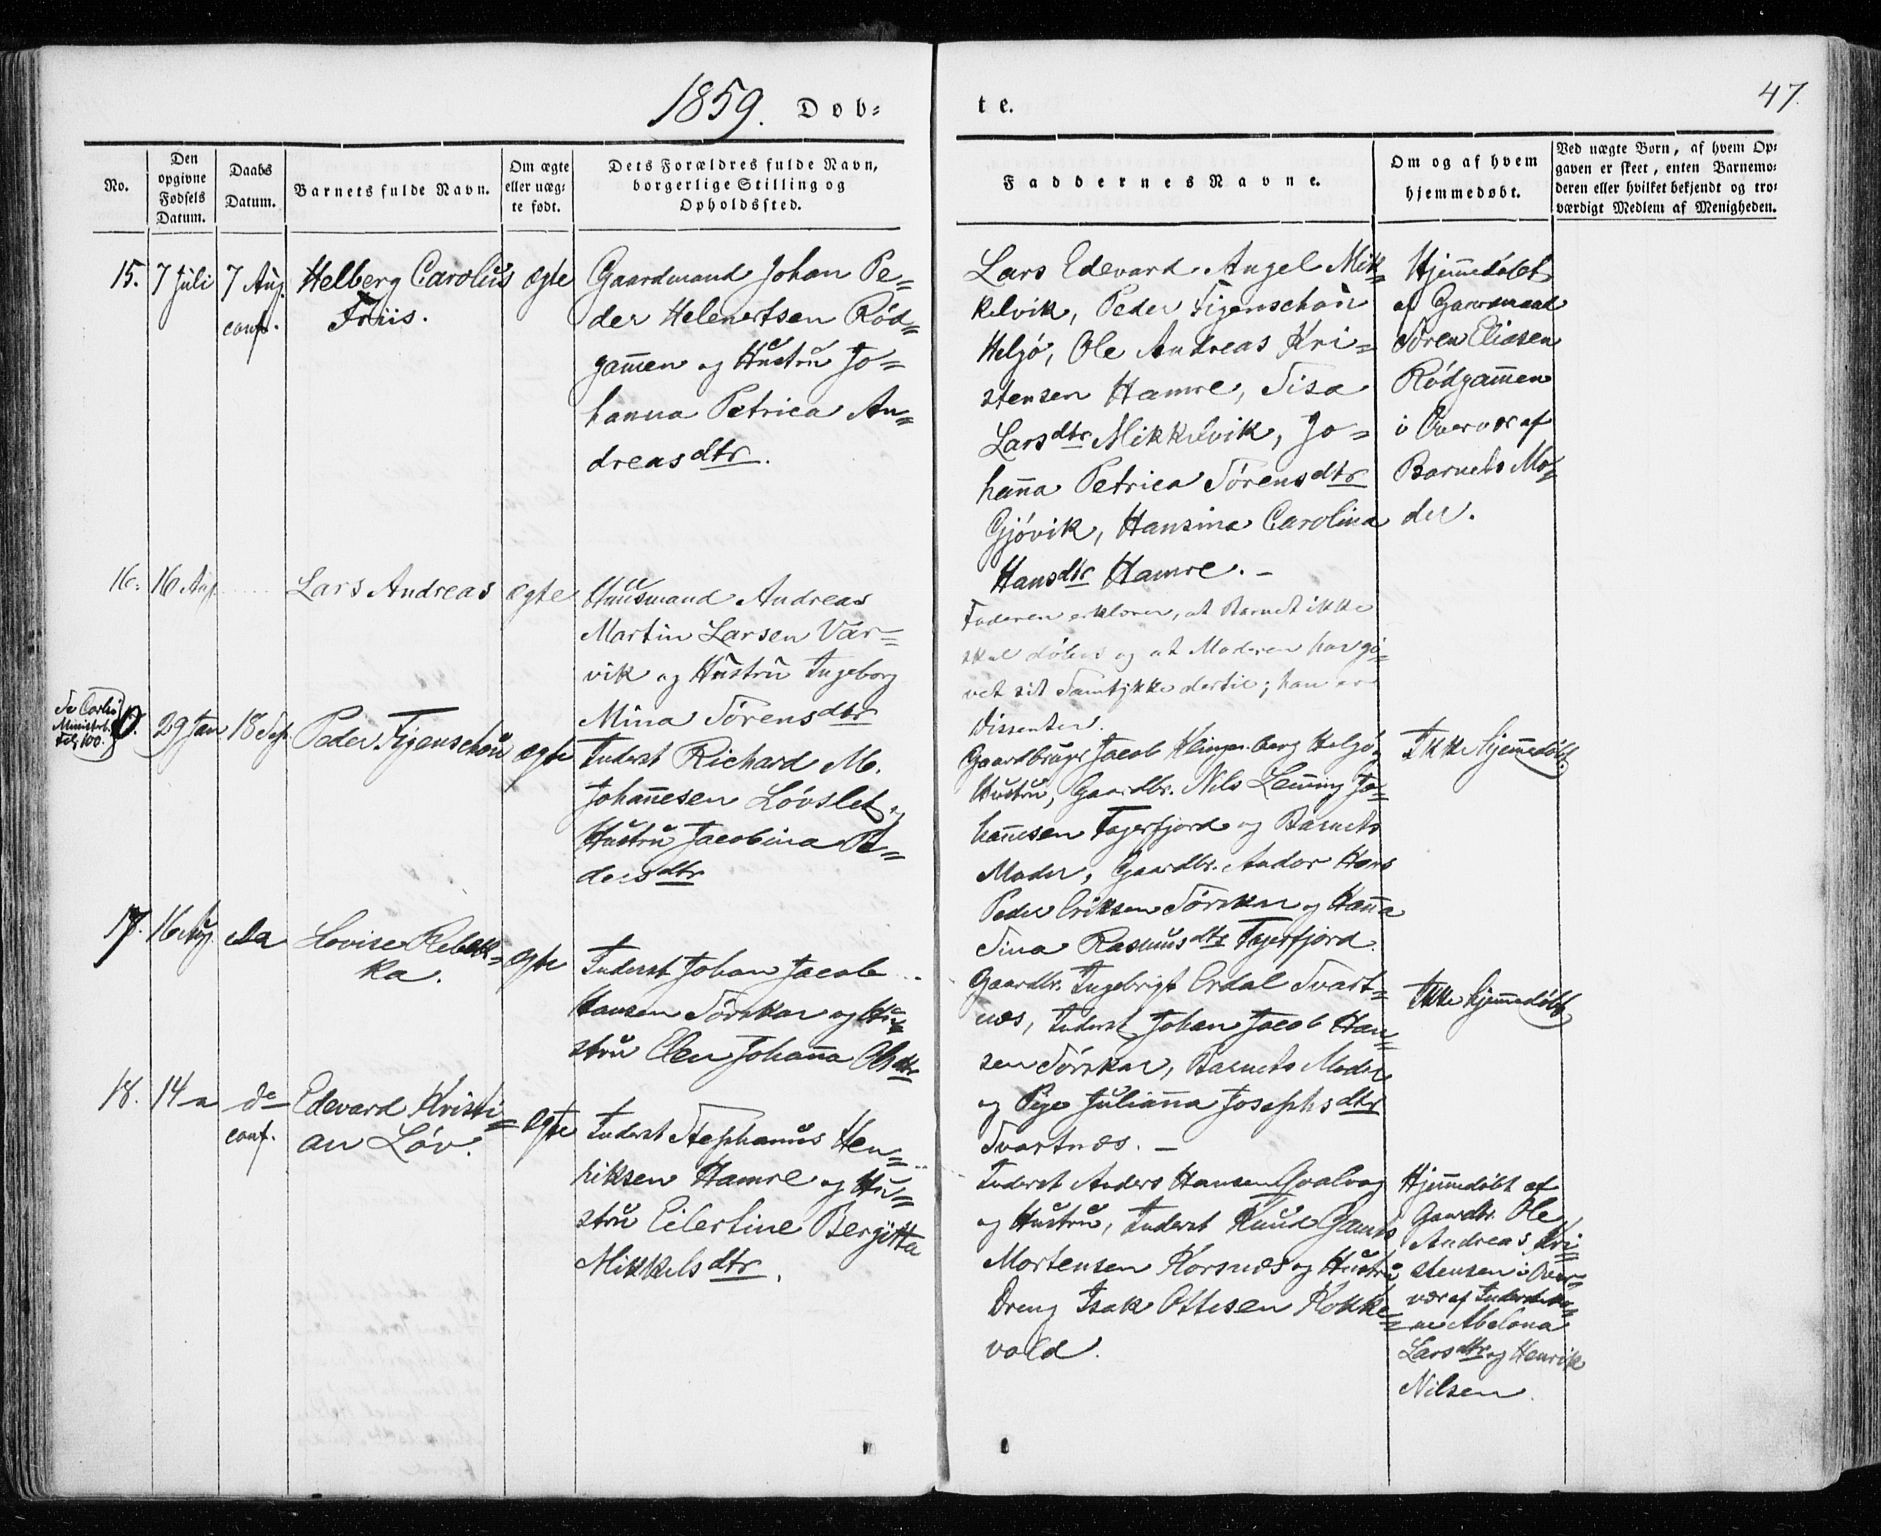 1859. Døb=
te.
47.
No.
Den
opgivne
Fødsels
Datum.
Daabs
Datum.
Barnets fulde Navn.
Om ægte
eller uæg=
te født.
Dets Forældres fulde Navn,
borgerlige Stilling og
Opholdssted.
Faddernes Navne.
Om og af hvem
hjemmedøbt.
Ved uægte Børn, af hvem Op=
gaven er skeet, enten Barnemo=
deren eller hvilket bekjendt og tro=
værdigt Medlem af Menigheden.
15.
7 Juli
7 Aug.
conf.
Helberg Carolus
Friis.
ægte
Gaardmand Johan Pe=
der Helenertsen Rød=
gam̄en og Hustru Jo=
hanna Petrica An=
dreasdtr.
Lars Edevard Angel Mik=
kelvik, Peder Figenschou
Helgø, Ole Andreas Kri=
stensen Hamre, Sisa
Larsdtr Mikkelvik, Jo=
han̄a Petrica Sørensdtr
Gjøvik, Hansina Carolina
Hansdtr Hamre. –
Hjem̄edøbt
af Gaardmand
Søren Eliasen
Rødgam̄en
i Overvær af
Barnets Mo=
der.
16.
16 Aug.
Lars Andreas
ægte
Huusmand Andreas
Martin Larsen Var=
vik og Hustru Ingeborg
Mina Sørensdtr
Faderen erklærer, at Barnet ikke
skal døbes og at Moderen har gi=
vet sit Samtykke dertil; han er
Dissenter.
Se Carlsø
Ministerb.
Fol. 100.
0.
29 Jan
18 Sept.
Peder Figenschou
ægte
Inderst Richard M.
Johan̄esen Løvslet og
Hustru Jacobina Pe=
dersdtr
Gaardbruger Jacob Klingenberg Helgø,
Hustru, Gaardbr. Nils Lem̄ing Jo=
han̄esen Fagerfjord og Barnets
Moder, Gaardbr. Andor Hans
Peder Eriksen Sørskar og Han̄a
Sina Rasmusdtr Fagerfjord.
Ikke hjem̄edøbt.
17.
16 Aug
da
Lovise Rebek=
ka.
ægte
Inderst Johan Jacob
Hansen Sørskar og Hu=
stru Elen Johan̄a Olsdtr
Gaardbr. Ingebrigt Erdal Svart=
næs, Inderst Johan Jacob Han=
sen Sørskar, Barnets Moder
og Pige Julian̄a Josephsdtr
Svartnæs. –
Ikke hjem̄edøbt
18.
14 "
do
conf.
Edevard Kristi=
an Løv.
ægte
Inderst Stephanus Hen=
riksen Hamre og Hu=
stru Eilertine Bergitta
Mikkelsdtr.
Inderst Anders Hansen Gvalvag
og Hustru, Inderst Knud
Mortensen Korsnæs og Hustru
Dreng Isak Ottesen Kokke=
vold.
Hjem̄edøbt af
Gaardbr. Ole
Andreas Kri=
stensen i Over=
vær af Inderstko=
ne Abelona
Larsdtr og Henrik
Nilsen.